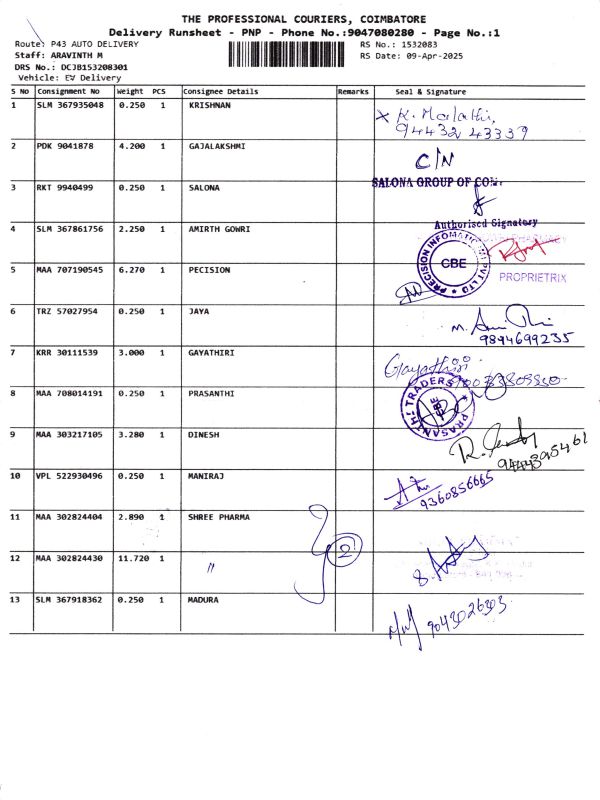 THE PROFESSIONAL COURIERS, COIMBATORE
Delivery Runsheet - PNP - Phone No.:9047080280 - Page No.:1
Route: P43 AUTO DELIVERY
RS No.: 1532083
Staff: ARAVINTH M
RS Date: 09-Apr-2025
DRS No.: DCJB153208301
Vehicle: EV Delivery
S No Consignment No Weight PCS Consignee Details Remarks Seal & Signature
1 SLM 367935048 0.250 1 KRISHNAN
x K. Malathi,
94432 43339
2 PDK 9041878 4.200 1 GAJALAKSHMI
C/N
3 RKT 9940499 0.250 1 SALONA
SALONA GROUP OF COM.
Authorised Signatory
4 SLM 367861756 2.250 1 AMIRTH GOWRI
PROPRIETRIX
5 MAA 707190545 6.270 1 PECISION
PRECISION INFOMATIC (M) PVT LTD
CBE
6 TRZ 57027954 0.250 1 JAYA
9894699235
7 KRR 30111539 3.000 1 GAYATHIRI
Gayathiri
8 MAA 708014191 0.250 1 PRASANTHI
PRASANTHI TRADERS
CBE
9 MAA 303217105 3.280 1 DINESH
9444395461
10 VPL 522930496 0.250 1 MANIRAJ
9360856665
11 MAA 302824404 2.890 1 SHREE PHARMA
2
12 MAA 302824430 11.720 1 "
13 SLM 367918362 0.250 1 MADURA
9043026303